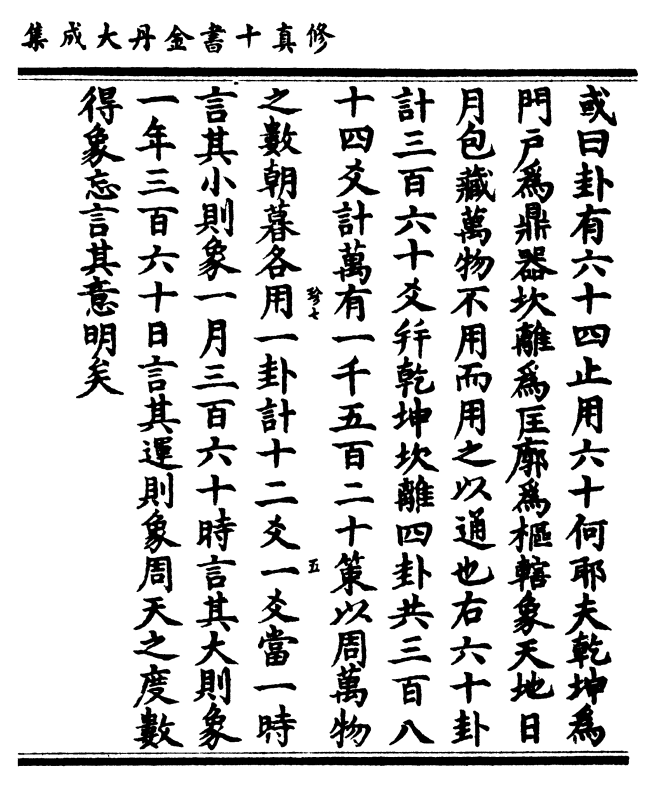 修真十書金丹大成集
或曰卦有六十四止用六十何耶夫乾坤爲
門戶爲鼎器坎離爲匡廓爲樞轄象天地日
月包藏萬物不用而用之以通也右六十卦
計三百六十爻幷乾坤坎離四卦共三百八
十四爻計萬有一千五百二十策以周萬物
珍七
五
之數朝暮各用一卦計十二爻一爻當一時
言其小則象一月三百六十時言其大則象
一年三百六十日言其運則象周天之度數
得象忘言其意明矣